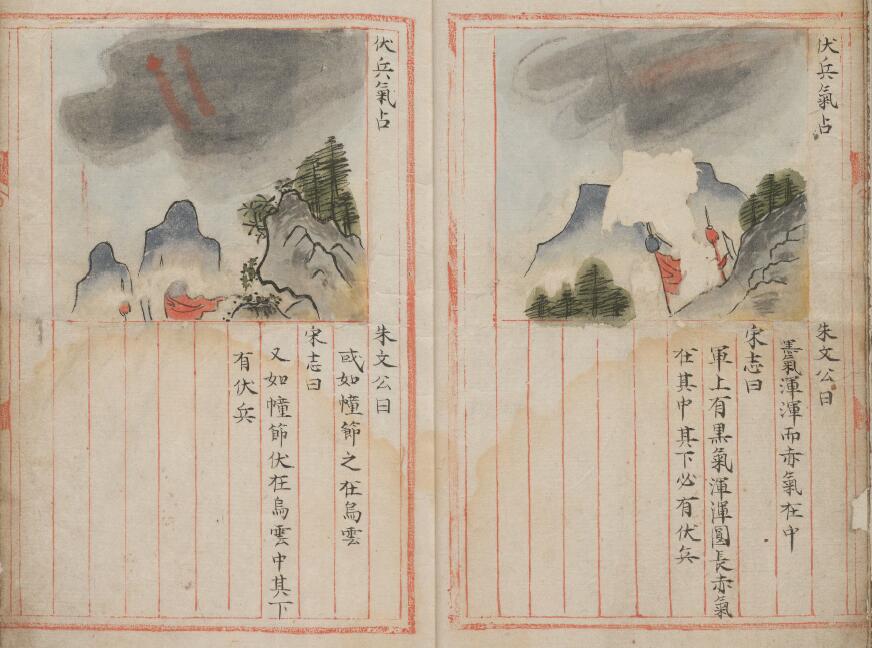 伏兵氣占
朱文公曰
黑氣渾渾而赤氣在中
宋志曰
軍上有黑氣渾渾圓長赤氣
在其中其下必有伏兵
伏兵氣占
朱文公曰
或如幢節之在烏雲
宋志曰
又如幢節伏在烏雲中其下
有伏兵